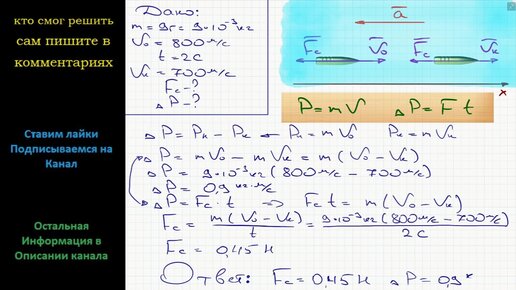 кто смог решить
сам пишите в
комментариях
Ставим лайки
Подписываемся на
Канал
Остальная
Информация в
Описании канала
Дано:
m = 9г = 9·10⁻³ кг
V₀ = 800 м/с
t = 2с
Vк = 700 м/с
Fc - ?
△P - ?
a
Fc V₀ Fc Vк
x
P = mV △P = Ft
△P = Pн - Pк Pн = mV₀ Pк = mVк
△P = mV₀ - mVк = m(V₀ - Vк)
△P = 9·10⁻³ кг (800 м/с - 700 м/с)
△P = 0,9 кг·м/с
△P = Fc·t ⇒ Fc t = m(V₀ - Vк)
Fc = m(V₀ - Vк)/t = 9·10⁻³ кг (800 м/с - 700 м/с)/2с
Fc = 0,45 Н
Ответ: Fc = 0,45 Н △P = 0,9